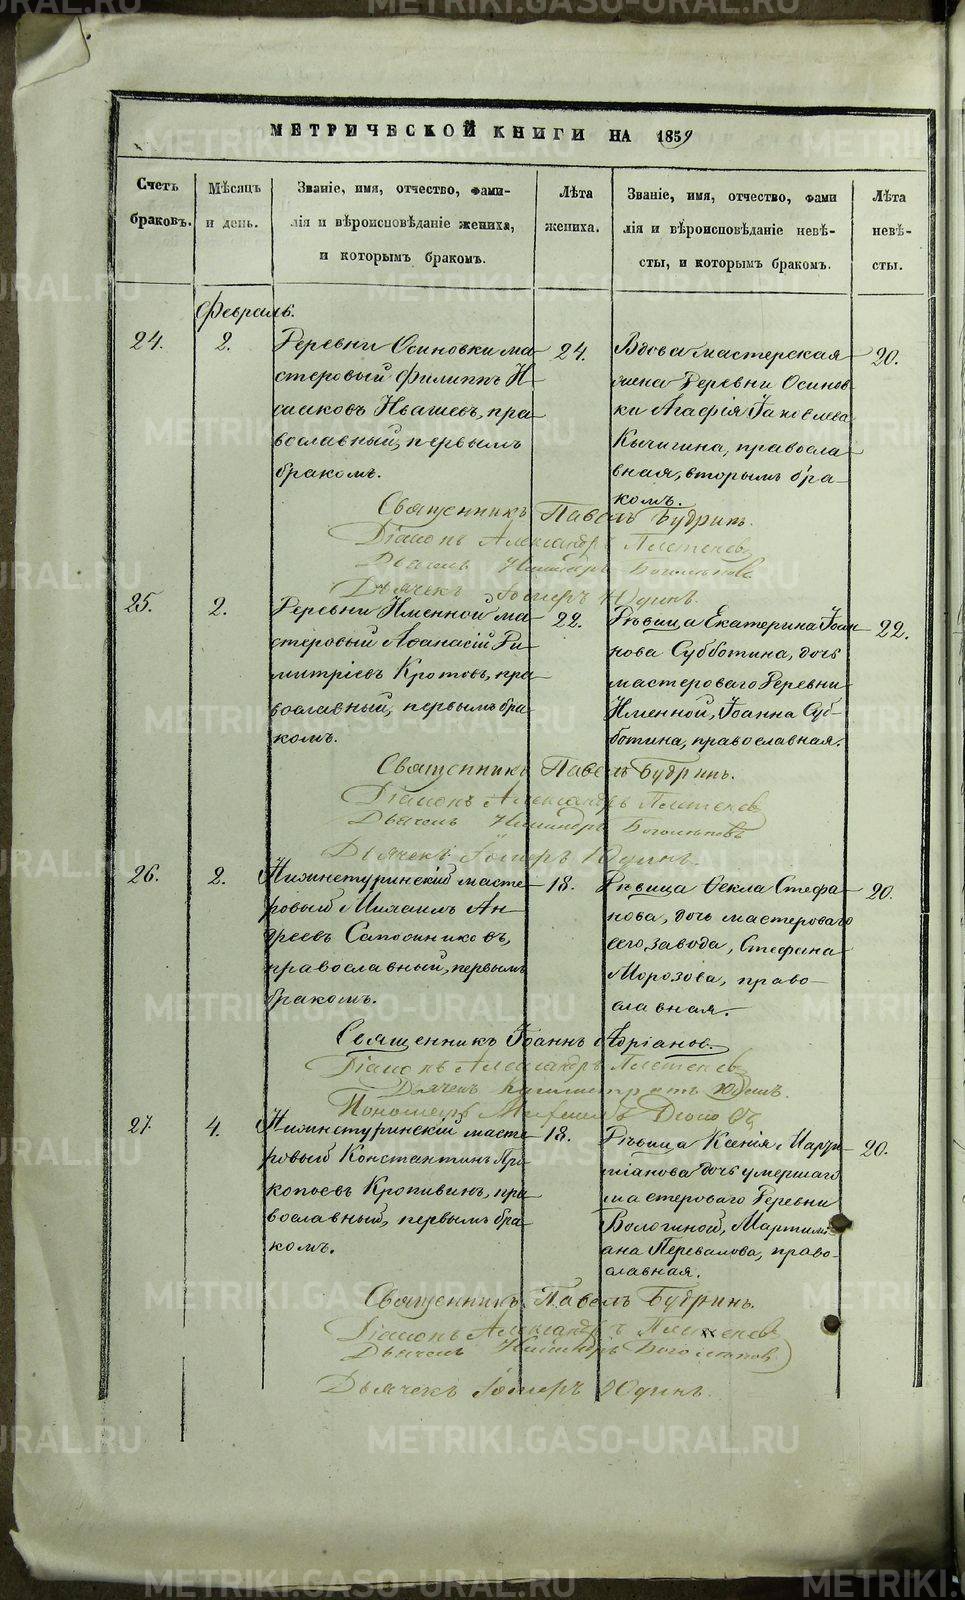 МЕТРИЧЕСКОЙ КНИГИ НА 1859
Счетъ браковъ.
Мѣсяцъ и день.
Званіе, имя, отчество, фами-
лія и вѣроисповѣданіе жениха,
и которымъ бракомъ.
Лѣта жениха.
Званіе, имя, отчество, фами
лія и вѣроисповѣданіе невѣ-
сты, и которымъ бракомъ.
Лѣта невѣ-
сты.
Февраль.
24.
2.
Деревни Осиновки ма-
стеровый Филиппъ И-
сааковъ Ивашевъ, пра-
вославный, первымъ
бракомъ.
24.
Вдова мастерская
жена Деревни Осинов-
ки Агафія Іаковлева
Кычигина, правосла-
вная, вторымъ бра-
комъ.
20.
Священникъ Павелъ Будринъ.
Діаконъ Александръ
Дьячекъ
Дьячекъ Юдинъ.
25.
2.
Деревни Именной ма-
стеровый Аѳанасій Ди-
митріевъ Кротовъ, пра-
вославный, первымъ бра-
комъ.
22.
Дѣвица Екатерина Іоан-
нова Субботина, дочь
мастероваго Деревни
Именной, Іоанна Суб-
ботина, православная.
22.
Священникъ Павелъ Будринъ.
Діаконъ Александръ
Дьячекъ
Дьячекъ Юдинъ.
26.
2.
Нижнетуринскій масте-
ровый Михаилъ Ан-
дреевъ Сапожниковъ,
православный, первымъ
бракомъ.
18.
Дѣвица Ѳекла Стефа-
нова, дочь мастероваго
сего завода, Стефана
Морозова, право-
славная.
20.
Священникъ Іоаннъ Адріановъ.
Діаконъ Александръ
Дьячекъ Юдинъ.
Пономарь Михаилъ
27.
4.
Нижнетуринскій масте-
ровый Константинъ Про-
копьевъ Кропивинъ, пра-
вославный, первымъ бра-
комъ.
18.
Дѣвица Ксенія Марти-
ніанова дочь умершаго
мастероваго Деревни
Вологиной, Мартині-
ана Перевалова, право-
славная.
20.
Священникъ Павелъ Будринъ.
Діаконъ Александръ
Дьячекъ
Дьячекъ Юдинъ.
METRIKI.GASO-URAL.RU